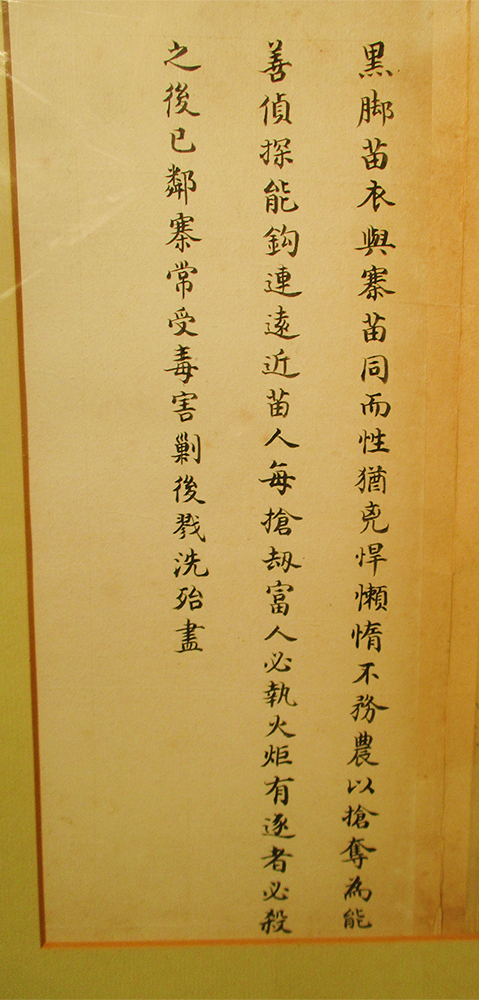 黑脚苗衣與寨苗同而性猶兇悍懶惰不務農以搶奪為能
善偵探能鈎連遠近苗人每搶刼富人必執火炬有逐者必殺
之後已鄰寨常受毒害剿後戮洗殆盡